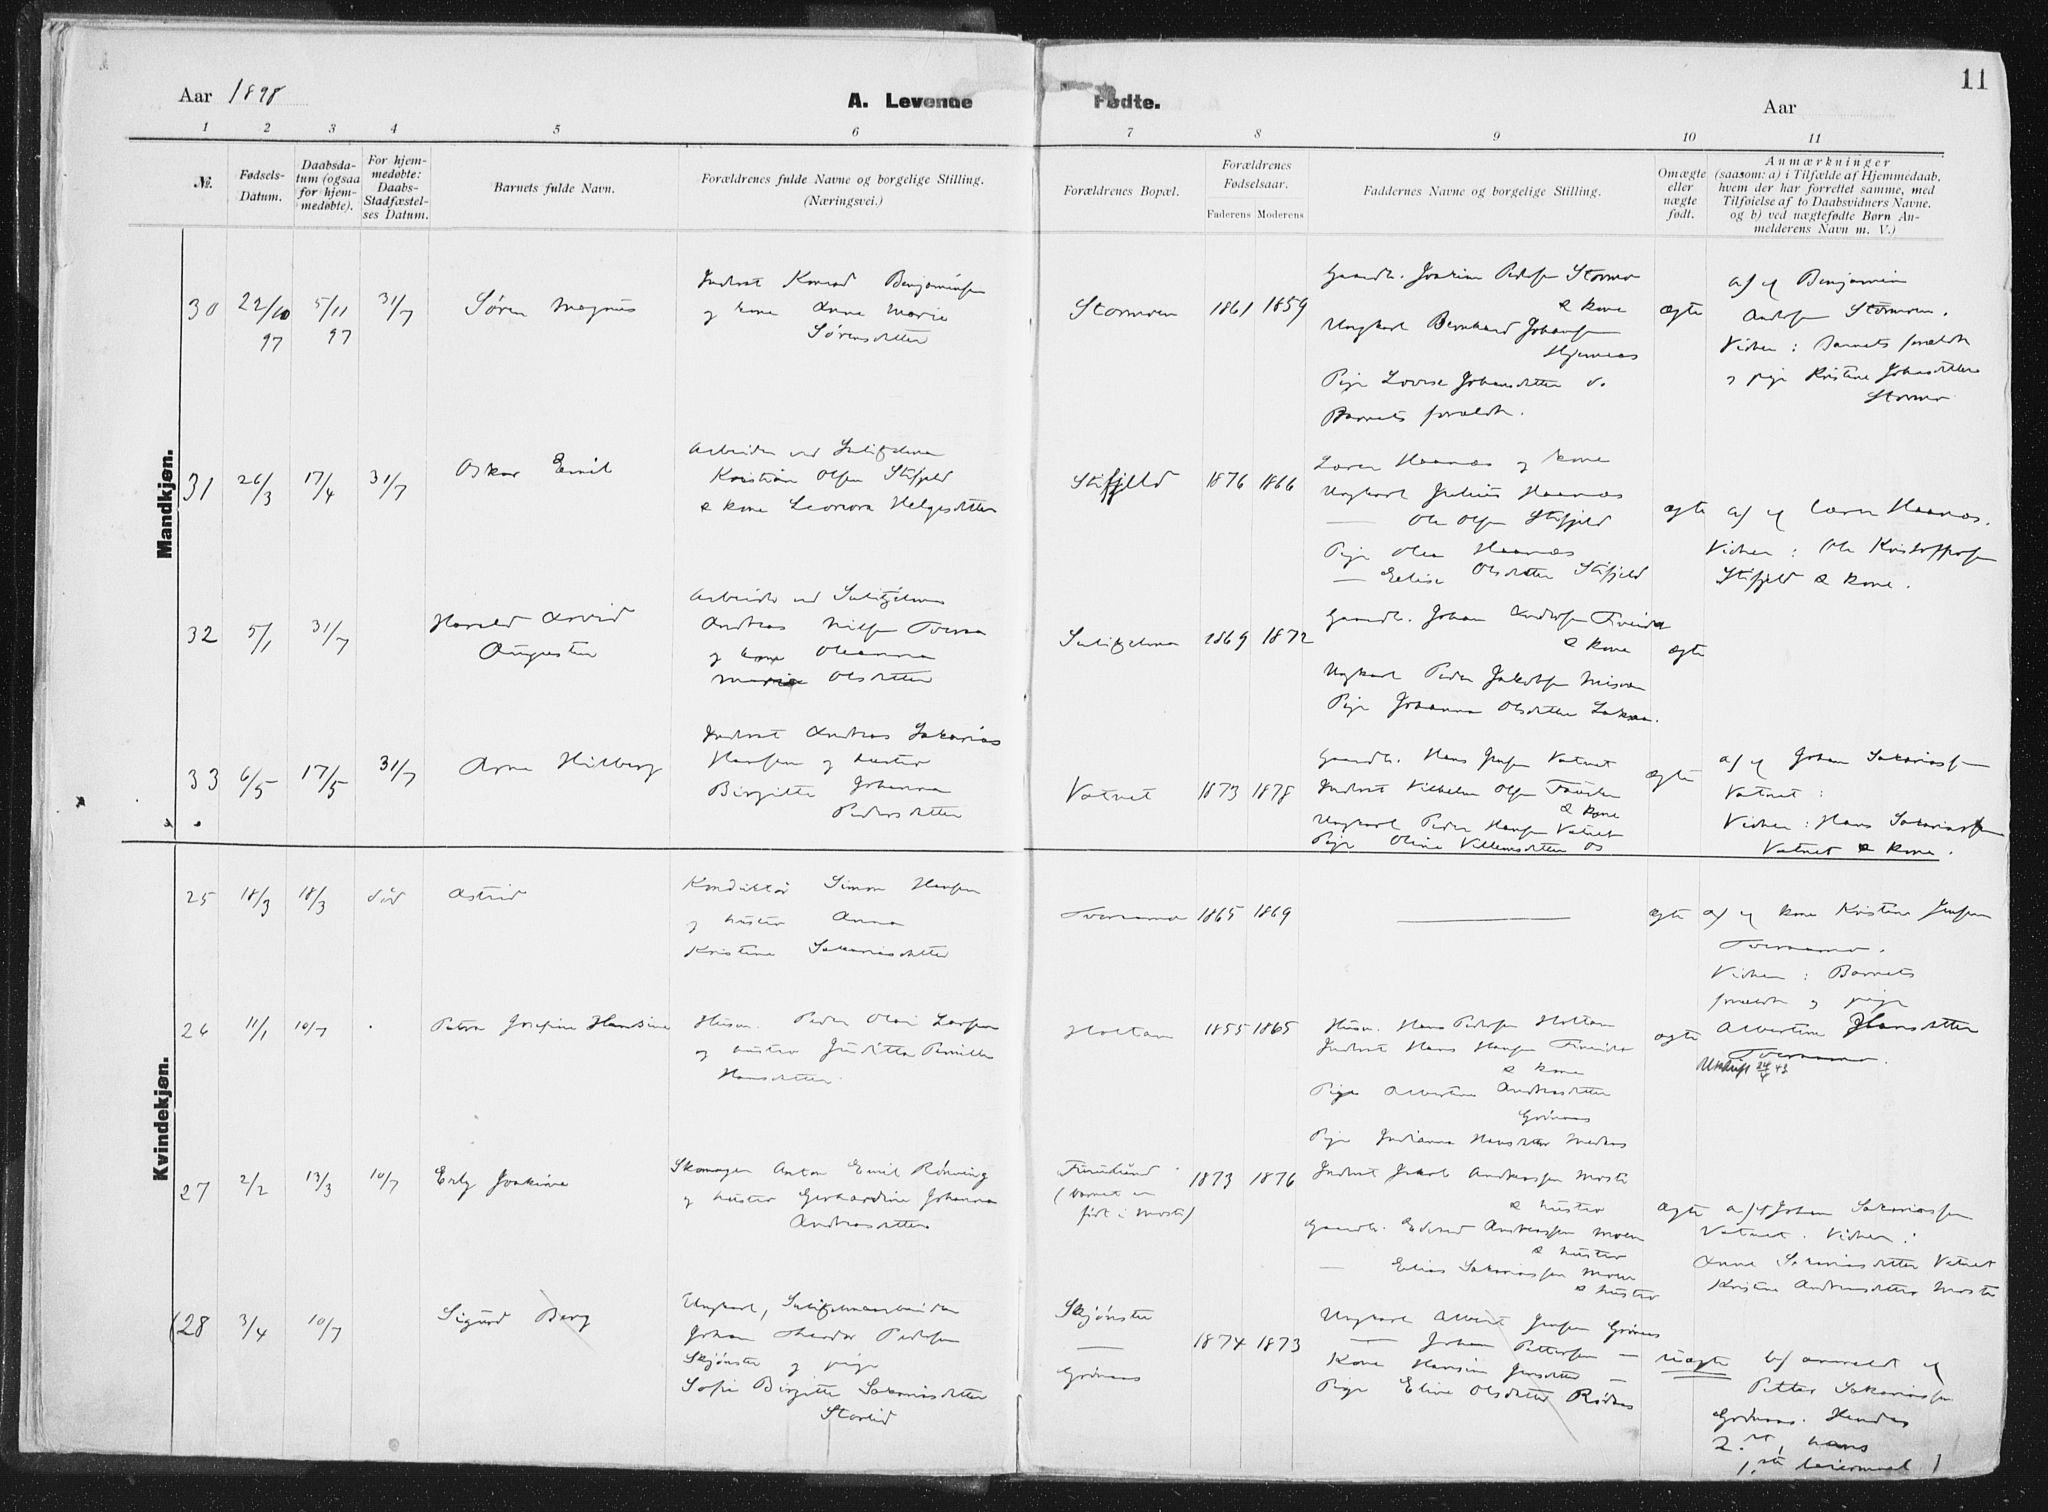 11
Aar 1898
A. Levende Fødte.
Aar
1 2 3 4 5 6 7 8 9 10 11
№.
Fødsels-
Datum.
Daabsda-
tum (ogsaa
for hjem-
medøbte).
For hjem-
medøbte:
Daabs-
Stadfæstel-
ses Datum.
Barnets fulde Navn.
Forældrenes fulde Navne og borgelige Stilling.
(Næringsvei.)
Forældrenes Bopæl.
Forældrenes
Fødselsaar.
Faderens Moderens
Faddernes Navne og borgelige Stilling.
Omægte
eller
nægte
født.
Anmærkninger
(saasom: a) i Tilfælde af Hjemmedaab.
hvem der har forrettet samme, med
Tilføielse af to Daabsvidners Navne.
og b) ved nægtefødte Børn An-
melderens Navn m. V.)
Mandkjøn.
30 22/10 97 5/11 97 31/7 Søren Magnus
Inderst Konrad Benjaminsen
og kone Anne Marie
Sørensdatter
Stormoen 1861 1859
Gaardb. Joakim Pedersen Stormo
& kone
Ungkarl Bernhard Johansen
Hjemaas
Pige Lovise Johansdatter
Barnets forældr.
ægte
Benjamin
Stormoen.
Vidner: Barnets forældr
og pige Kristine Johansdatter
Stormo
31 26/3 17/4 31/7 Oskar Emil
Arbeider ved Sulitjelma
Kristian Olsen Stifjeld
& kone Leonora Helgesdatter
Stifjeld 1876 1866
Lærer Haanæs og kone
Ungkarl Julius Haanæs
— Ole Olsen Stifjeld
Pige Olea Haanæs
— Eelise Olsdatter Stifjeld
ægte
Lærer Haanæs.
Vidner: Ole Kristoffersen
Stifjeld & kone.
32 5/1 31/7 Harald Arvid
Augustin
Arbeider ved Sulitjelma
Andreas Nilsen
og kone Oleanna
Marie Olsdatter
Sulitjelma 1869 1872
Gaardb. Johan
& kone
Ungkarl Peder Jakobsen Misvær
Pige Johanna Olsdatter
ægte
33 6/5 17/5 31/7 Arne Hilberg
Inderst Andreas Sakarias
Hansen og hustru
Birgitte Johanna
Pedersdatter
Vatnet 1873 1878
Gaardb. Hans Jensen Vatnet
Inderst Vilhelm Olsen
& kone
Ungkarl Peder Hansen Vatnet
Pige Oline Villumsdatter
ægte
Johan Sakariassen
Vatnet:
Vidner: Hans Sakariassen
Vatnet & kone.
Kvindekjøn.
25 18/3 18/3 død Astrid
Konduktør Simon Hansen
og hustru Anna
Kristine Sakariasdatter
1865 1869
ægte
kone Kristine Jensen
Vidner: Barnets
forældr og pige
Albertine Hansdatter
26 11/1 10/7 Petra Josefine Hansine
Husm. Peder Olai Larsen
og hustru Juditta Pernille
Hansdatter.
Holtan 1855 1865
Husm. Hans Pedersen Holtan
Inderst Hans Hansen
& kone
Pige Albertine Andreasdatter
Grønaas
Pige Indianna Hansdatter
ægte
Utskrift 24/4 43
27 2/2 13/3 10/7 Erly Joakime
Skomager Anton Emil Rønning
og hustru Gerhardine Johanna
Andreasdatter
Furulund
(barnet er
født i Mosti)
1873 1876
Inderst Jakob Andreassen Mosti
& hustru
Gaardb. Edvard Andreassen Moen
& hustru
— Elias Sakariassen Moen
& hustru
ægte
Johan Sakariassen
Vatnet. Vidner:
Anne Sakariasdatter Vatnet
Kristine Andreasdatter Mosti
(28 3/4 10/7 Sigurd Berg
Ungkarl, Sulitjelmaarbeider
Johan Theodor Pedersen
Skjønstu og pige
Sofie Birgitte Sakariasdatter
Storlid
Skjønstu
—
Grønaas
1874 1873
Ungkarl Albert Jensen Grønaas
— Johan Pettersen —
Kone Hansine Jensdatter —
Pige Eline Olsdatter Rødaas
uægte
b) anmeldt af
Petter Sakariassen
Grønaas. Hendes
2.det, hans
1.ste leiermaal)